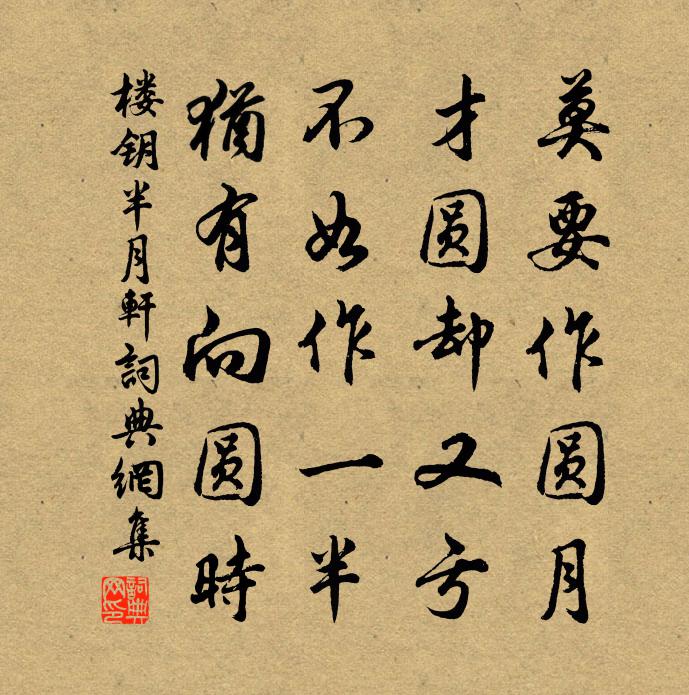 莫要作圆月
才圆却又亏
不如作一半
犹有向圆時
楼钥半月軒詞典網集
詞典网印